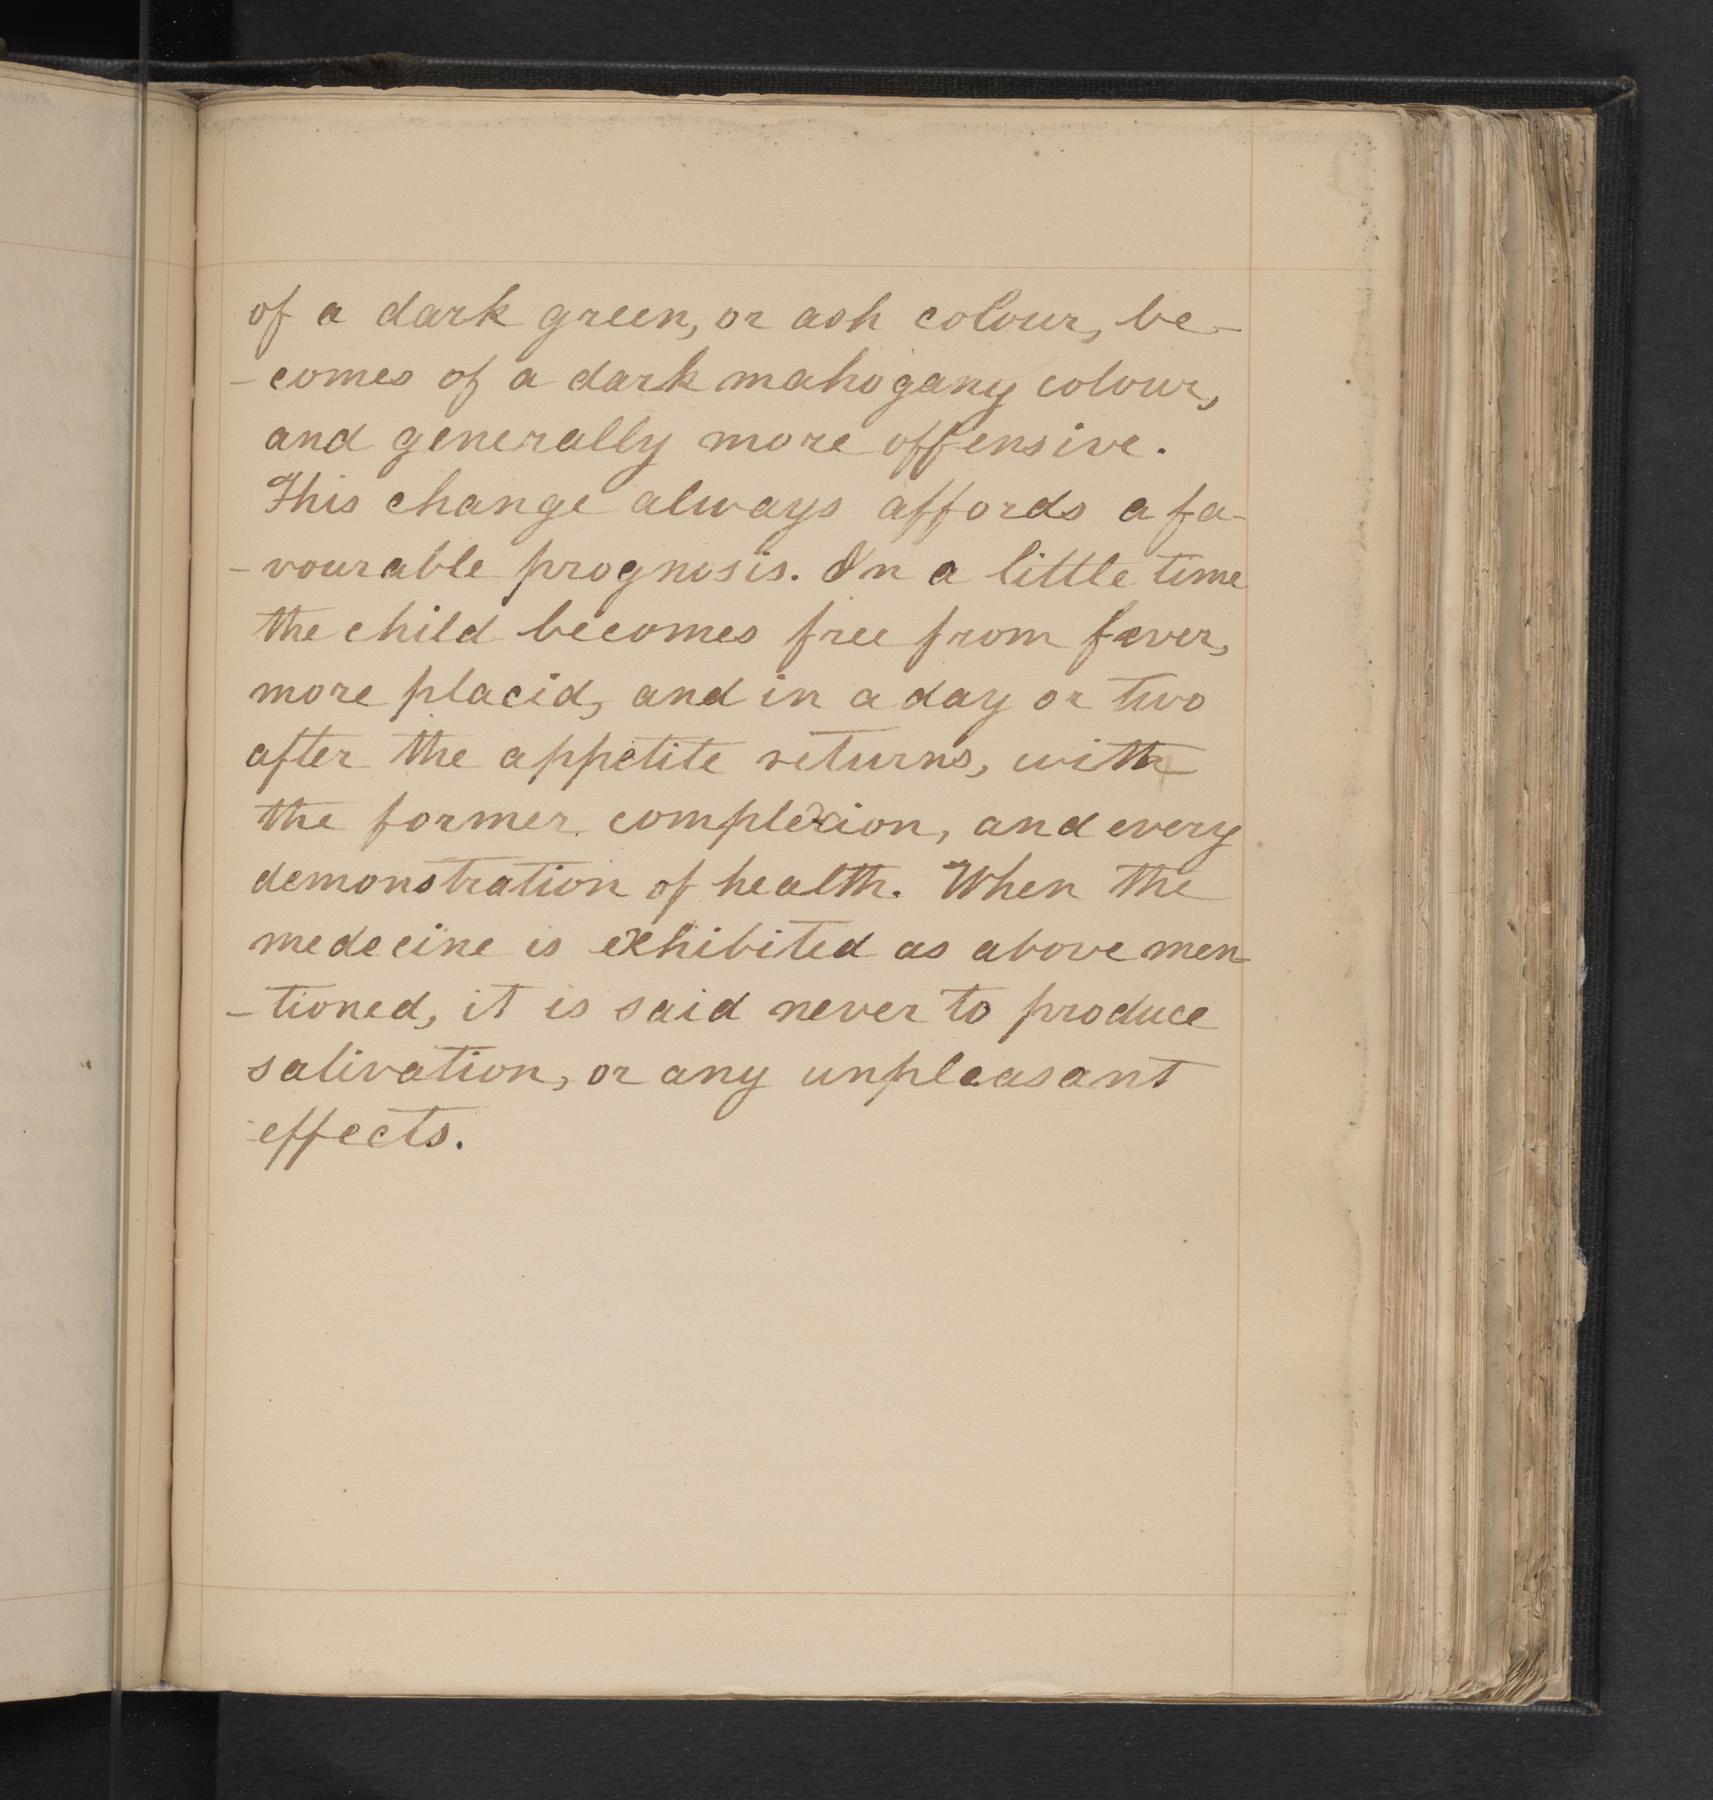 of a dark green, or ash colour, be-
-comes of a dark mahogany colour,
and generally more offensive.
This change always affords a fa-
-vourable prognosis. In a little time
the child becomes free from fever,
more placid, and in a day or two
after the appetite returns, with
the former complexion, and every
demonstration of health. When the
medecine is exhibited as above men-
-tioned, it is said never to produce
salivation, or any unpleasant
effects.